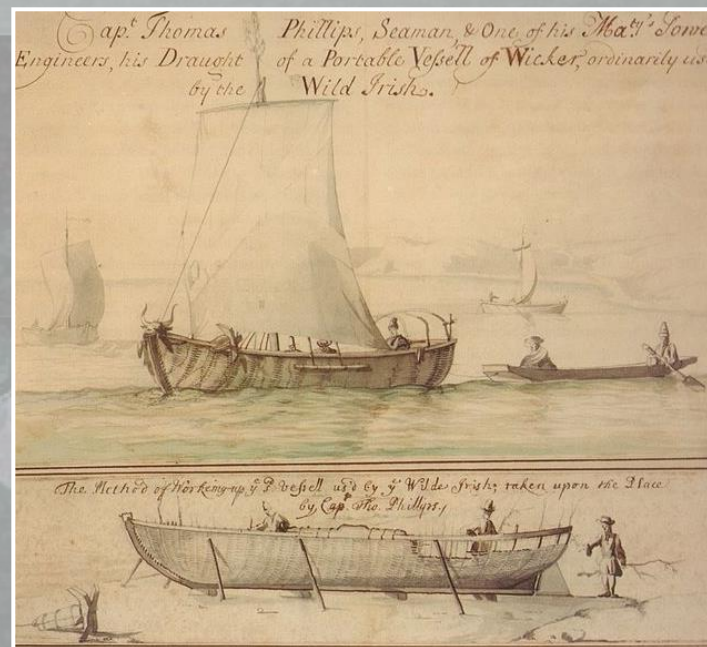 Capt. Thomas Phillips, Seaman, & One of his Maty's
Engineers, his Draught of a Portable Vessell of Wicker, ordinarily us
by the Wild Irish.
The Method of Working up ye sd. Vessell us'd by ye Wilde Irish; taken upon the Place
by Capt. Tho. Phillips,